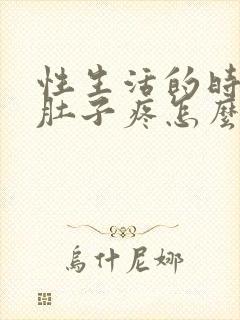 性生活的时
肚子疼怎麼
烏什尼娜